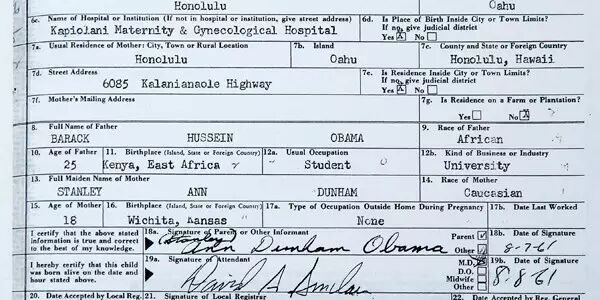 Honolulu Oahu
6c. Name of Hospital or Institution (If not in hospital or institution, give street address) 6d. Is Place of Birth Inside City or Town Limits?
If no, give judicial district
Kapiolani Maternity & Gynecological Hospital Yes X No
7a. Usual Residence of Mother: City, Town or Rural Location 7b. Island 7c. County and State or Foreign Country
Honolulu Oahu Honolulu, Hawaii
7d. Street Address 7e. Is Residence Inside City or Town Limits?
If no, give judicial district
6085 Kalanianaole Highway Yes X No
7f. Mother's Mailing Address 7g. Is Residence on a Farm or Plantation?
Yes No X
8. Full Name of Father 9. Race of Father
BARACK HUSSEIN OBAMA African
10. Age of Father 11. Birthplace (Island, State or Foreign Country) 12a. Usual Occupation 12b. Kind of Business or Industry
25 Kenya, East Africa Student University
13. Full Maiden Name of Mother 14. Race of Mother
STANLEY ANN DUNHAM Caucasian
15. Age of Mother 16. Birthplace (Island, State or Foreign Country) 17a. Type of Occupation Outside Home During Pregnancy 17b. Date Last Worked
18 Wichita, Kansas None
I certify that the above stated information is true and correct to the best of my knowledge. 18a. Signature of Parent or Other Informant Parent Other 18b. Date of Signature
(Stanley) Ann Dunham Obama 8-7-61
I hereby certify that this child was born alive on the date and hour stated above. 19a. Signature of Attendant M.D. D.O. Midwife Other 19b. Date of Signature
David A Sinclair 8-8-61
20. Date Accepted by Local Reg. 21. Signature of Local Registrar 22. Date Accepted by Reg. General